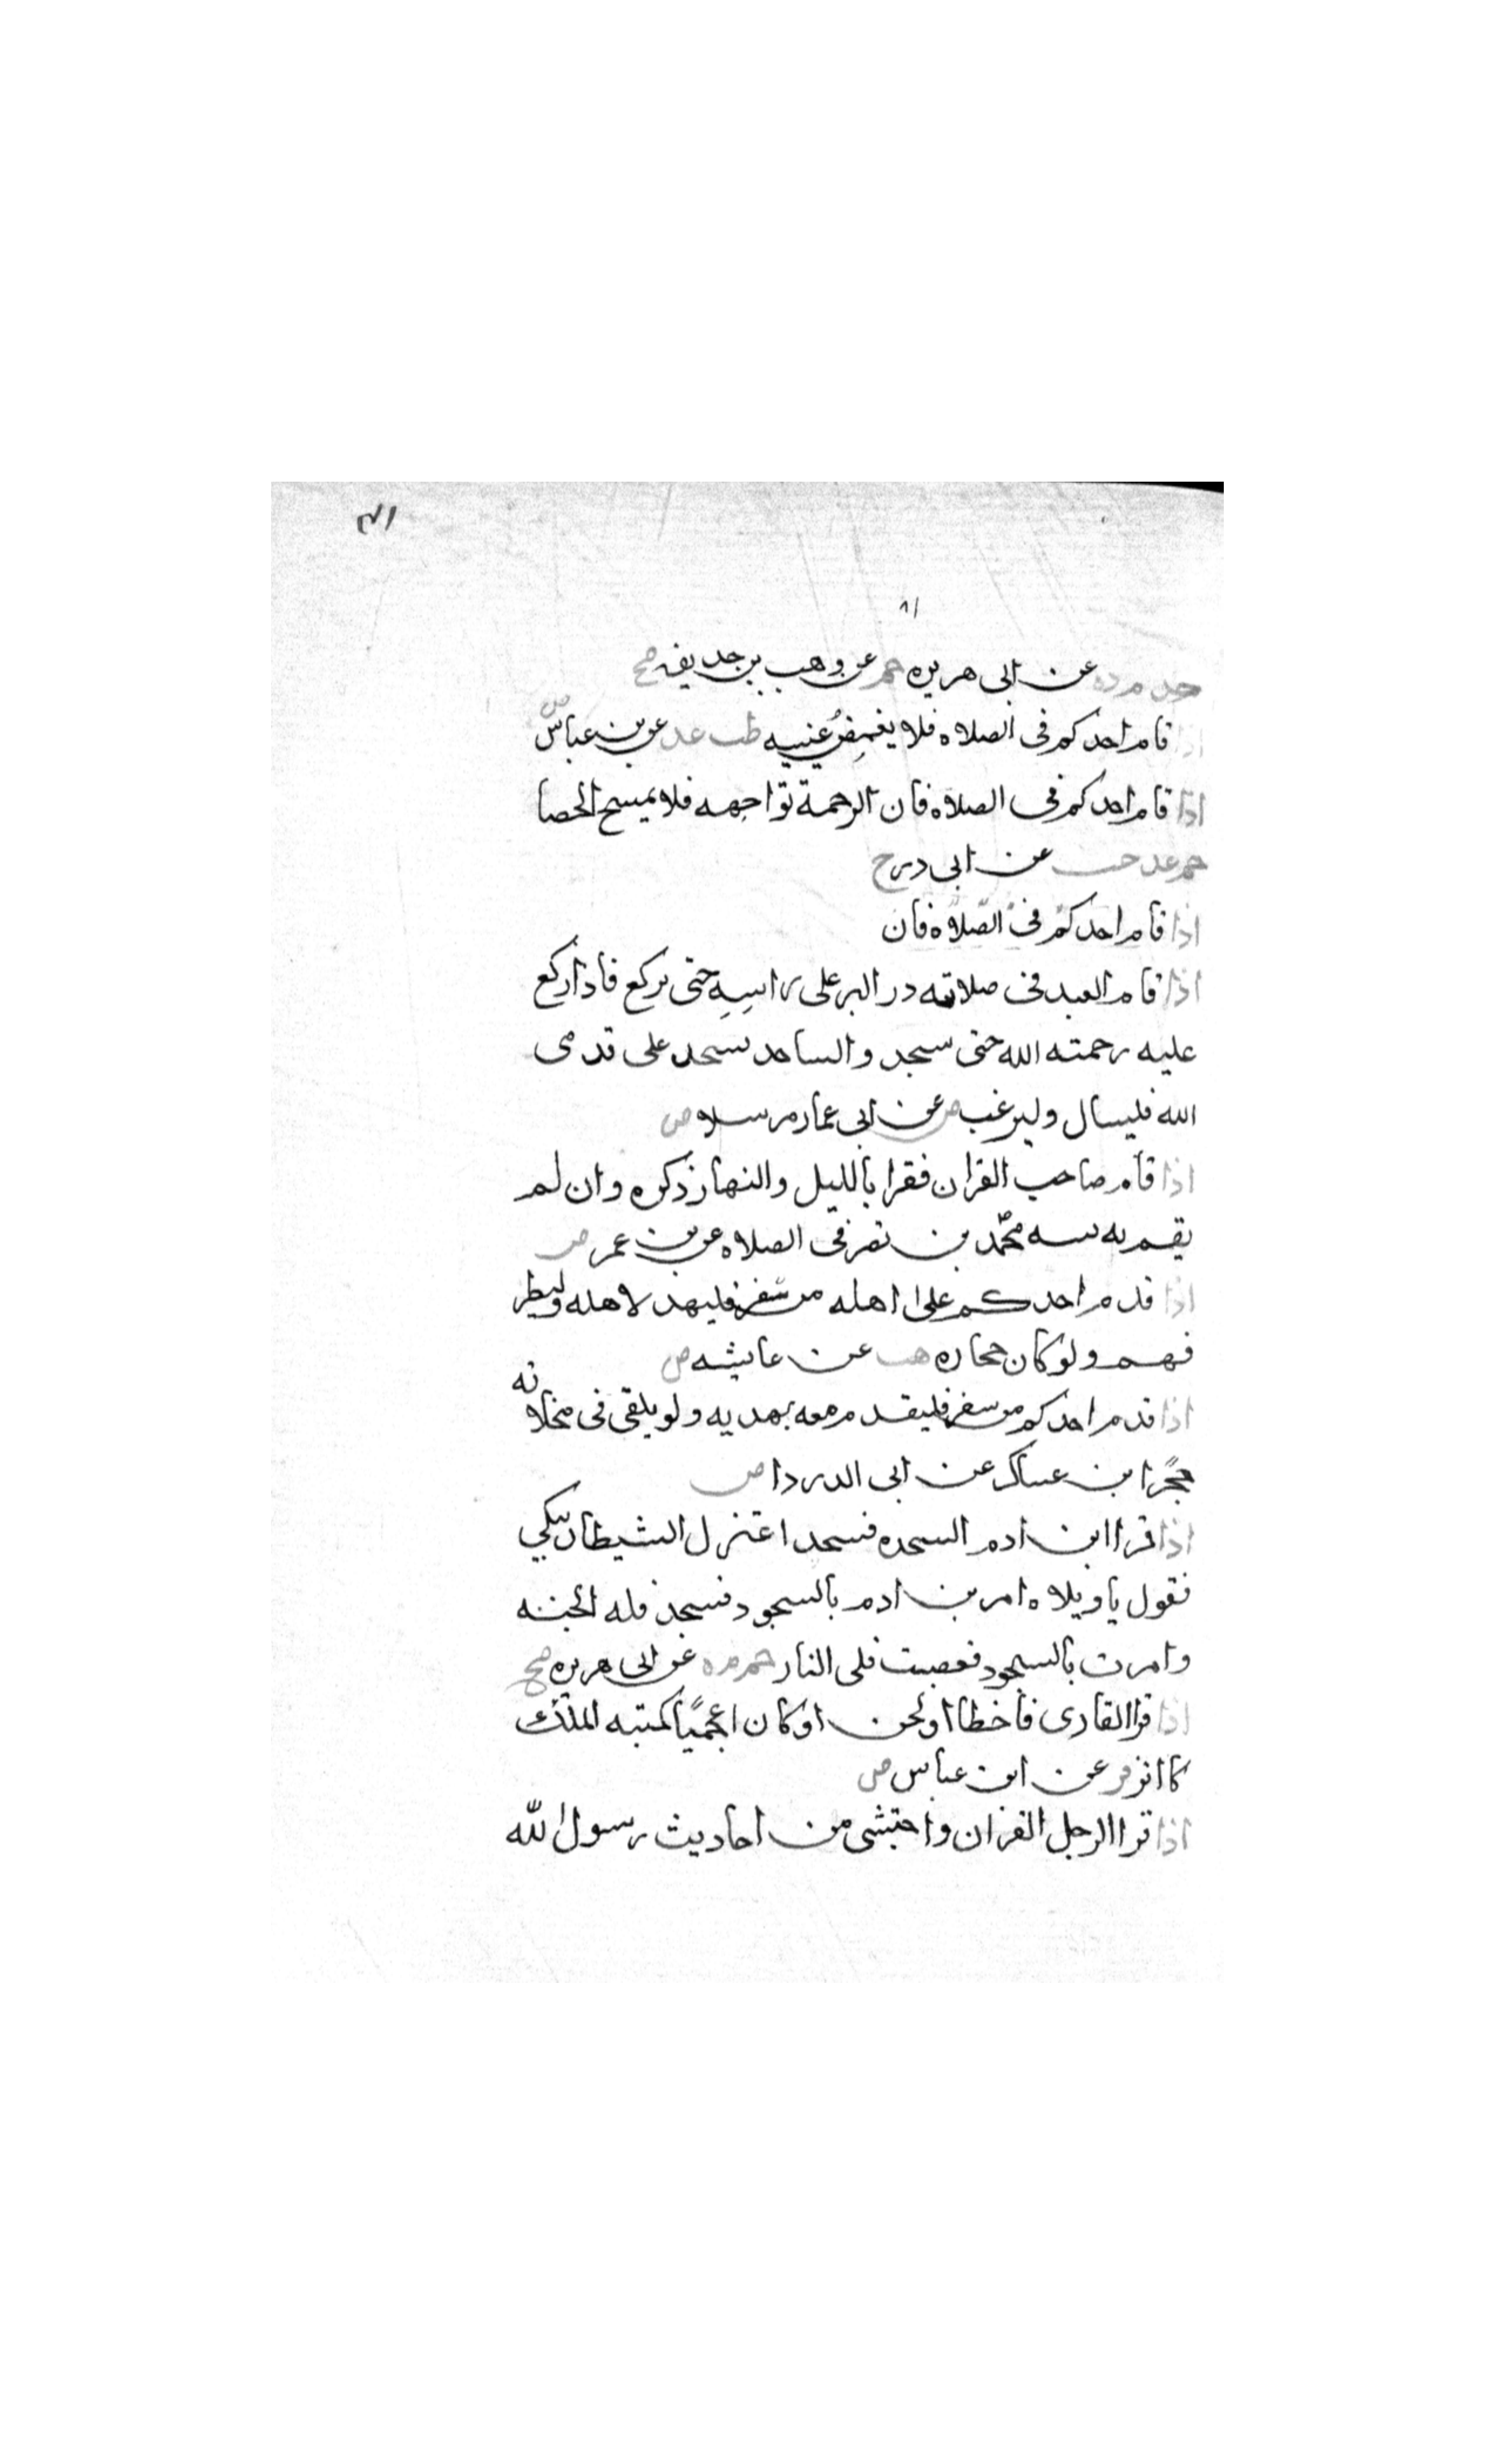 ٨١
حد م د ه عن ابى هريره حم عن وهب بن حديفه صح
اذا قام احدكم فى الصلاه فلا يغمض عينيه طب عد عن بن عباس ض
اذا قام احدكم فى الصلاه فان الرحمة تواجهه فلا يمسح الحصا
حم عد حب عن ابى در ح
اذا قام احدكم فى الصلاه فان
اذا قام العبد فى صلاته در البر على راسه حتى يركع فاذا ركع
عليه رحمته الله حتى سجد والساجد سجد على قدمى
الله فليسال وليرغب ص عن ابى عمار مرسلا ض
اذا قام صاحب القران فقرا بالليل والنهار ذكره وان لم
يقم به نسيه محمد بن نصر فى الصلاه عن بن عمر ض
اذا قدم احدكم على اهله من سفر فليهد لاهله وليطر
فهم ولو كان حجاره هب عن عايشه ض
اذا قدم احدكم من سفر فليقدم معه بهديه ولو يلقى فى مخلاته
حجرًا بن عساكر عن ابى الدردا ض
اذا قرا ابن ادم السجده فسجد اعتزل الشيطان يبكي
فقول ياويلاه امر بن ادم بالسجود فسجد فله الجنه
وامرت بالسجود فعصيت فلى النار حم م ه عن ابى هريره صح
اذا قرا القارى فاخطا او لحن او كان اعجميًا كتبه الملك
كما انزل فر عن ابن عباس ض
اذا قرا الرجل القران واحتشى من احاديث رسول الله